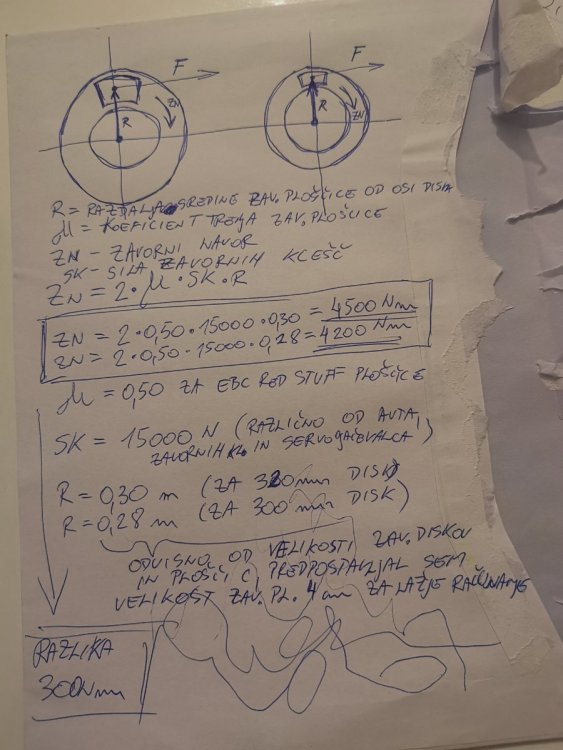 F
F
ZN
R
R
ZN
R = RAZDALJA SREDINE ZAV. PLOŠČICE OD OSI DISKA
μ = KOEFICIENT TRENJA ZAV. PLOŠČICE
ZN - ZAVORNI NAVOR
SK - SILA ZAVORNIH KLEŠČ
ZN = 2 · μ · SK · R
ZN = 2 · 0,50 · 15000 · 0,30 = 4500 Nm
ZN = 2 · 0,50 · 15000 · 0,28 = 4200 Nm
μ = 0,50 ZA EBC RED STUFF PLOŠČICE
SK = 15000 N (RAZLIČNO OD AVTA,
ZAVORNIH KL. IN SERVOOJAČEVALCA)
R = 0,30 m (ZA 320 mm DISK)
R = 0,28 m (ZA 300 mm DISK)
ODVISNO OD VELIKOSTI ZAV. DISKOV
IN PLOŠČIC, PREDPOSTAVLJAL SEM
VELIKOST ZAV. PL. 4 cm ZA LAŽJE RAČUNANJE
RAZLIKA
300 Nm